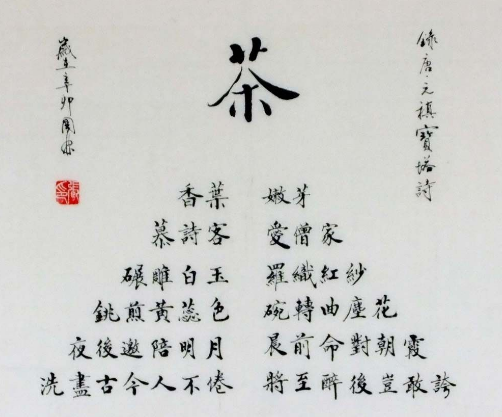 錄唐·元稹寶塔詩
茶
香葉 嫩芽
慕詩客 愛僧家
碾雕白玉 羅織紅紗
銚煎黃蕊色 碗轉曲塵花
夜後邀陪明月 晨前命對朝霞
洗盡古今人不倦 將至醉後豈敢誇
歲在辛卯